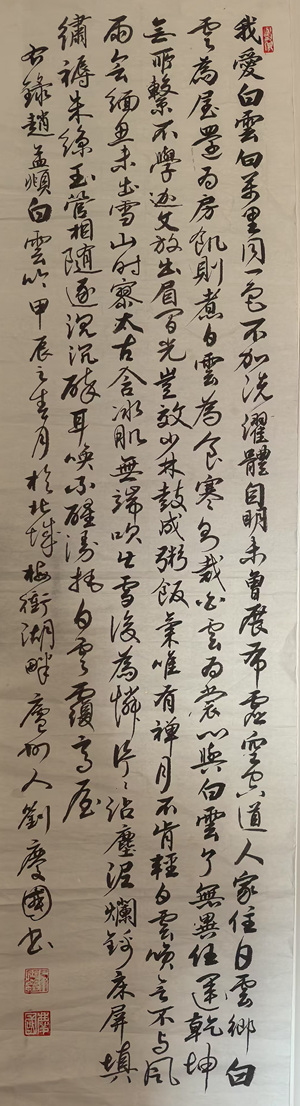 我愛白雲白萬里同一色不加洗濯體自明未曾展布虛空窄道人家住白雲鄉白
雲為屋還為房飢則煮白雲為食寒則裁白雲為裳心與白雲了無異任運乾坤
無所繫不學迦文放出眉間光豈效少林鼓成粥飯氣唯有禪月不肯輕白雲喚云不与風
雨會緬思未出雪山时寥寥太古含冰肌無端吹出雪後為憐片片沾塵泥爛錦床屏填
繡褥朱絲玉管相隨逐沉沉醉耳喚不醒謾把白雲覆高屋
右錄趙孟頫白雲吟甲辰之春月於北城梅衝湖畔廬州人劉慶國書